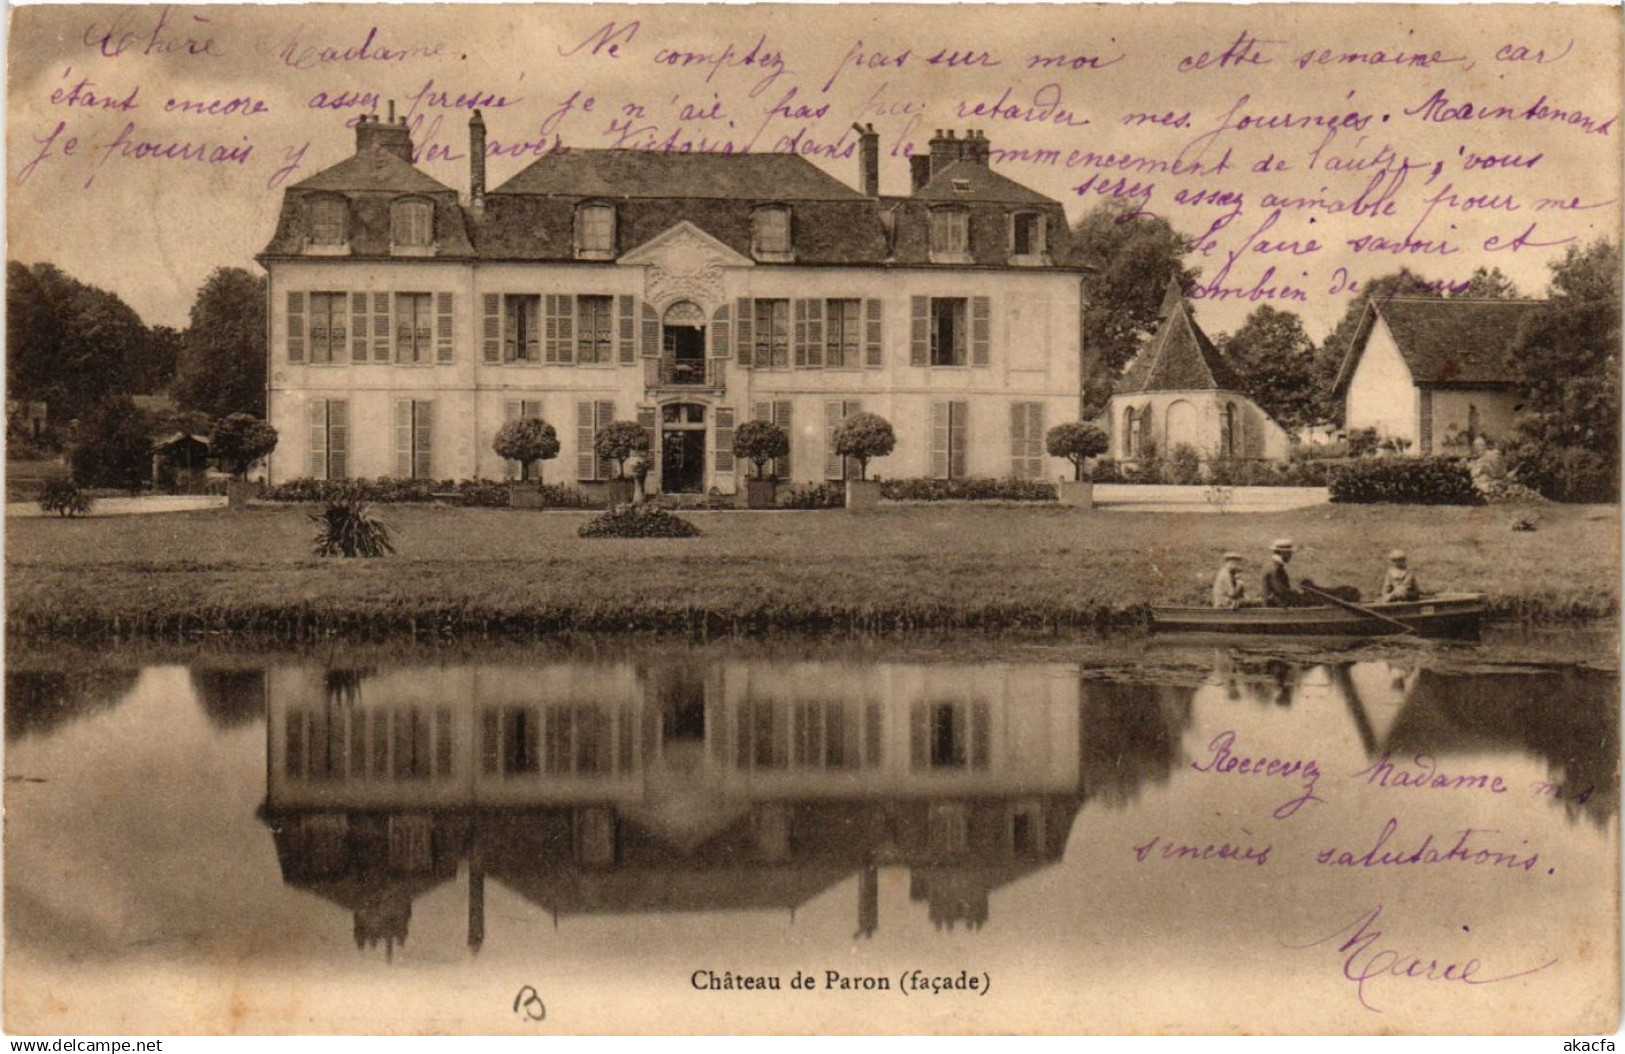 Chère Madame. Ne comptez pas sur moi cette semaine, car
étant encore assez pressé je n'aie pas pu retarder mes journées. Maintenant
je pourrais y aller avec Victoria dans le commencement de l'autre, vous
serez assez aimable pour me
le faire savoir et
combien de jours
Recevez Madame mes
sincères salutations.
Marie
Château de Paron (façade)
B
delcampe.net
akacfa